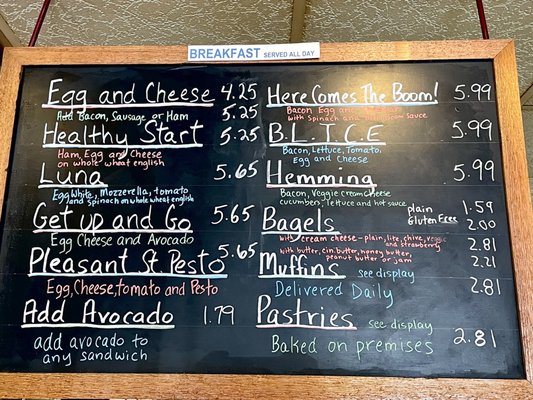 BREAKFAST SERVED ALL DAY
Egg and Cheese 4.25
Add Bacon, Sausage or Ham 5.25
Healthy Start 5.25
Ham, Egg and Cheese
on whole wheat english
Luna 5.65
Egg White, Mozzerella, tomato
and spinach on whole wheat english
Get up and Go 5.65
Egg Cheese and Avocado
Pleasant St. Pesto 5.65
Egg, Cheese, tomato and Pesto
Add Avocado 1.79
add avocado to
any sandwich
Here Comes The Boom! 5.99
Bacon Egg and
with Spinach and Boom Sauce
B.L.T.C.E 5.99
Bacon, Lettuce, Tomato,
Egg and Cheese
Hemming 5.99
Bacon, Veggie cream cheese
cucumbers, lettuce and hot sauce
Bagels plain 1.59
Gluten Free 2.00
with cream cheese - plain, lite, chive, veggie
and strawberry 2.81
with butter, cin. butter, honey butter,
peanut butter or jam 2.21
Muffins see display 2.81
Delivered Daily
Pastries see display 2.81
Baked on premises